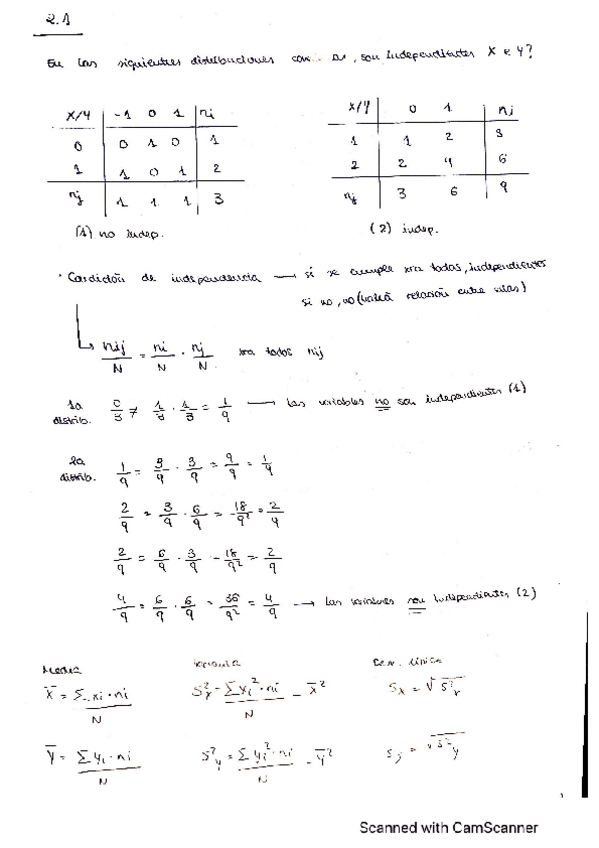 2.1
En las siguientes distribuciones son independientes X e Y?
X/Y -1 0 1 ni
0 0 1 0 1
1 1 0 1 2
nj 1 1 1 3
(1) no indep.
X/Y 0 1 nj
1 1 2 3
2 2 4 6
nj 3 6 9
(2) indep.
· Condición de independencia → si se cumple xra todas, independientes
si no, no (habrá relación entre ellas)
nij/N = ni/N · nj/N xra todos nij
1a distrib. 0/3 ≠ 1/3 · 1/3 = 1/9 → las variables no son independientes (1)
2a distrib. 1/9 = 3/9 · 3/9 = 9/9 = 1/9
2/9 = 3/9 · 6/9 = 18/9² = 2/9
2/9 = 6/9 · 3/9 = 18/9² = 2/9
4/9 = 6/9 · 6/9 = 36/9² = 4/9 → las variables son independientes (2)
Media Varianza Desv. típica
x̄ = Σxi·ni/N S²x = Σxi²·ni/N - x̄² Sx = √S²x
ȳ = Σyi·ni/N S²y = Σyi²·ni/N - ȳ² Sy = √S²y
Scanned with CamScanner